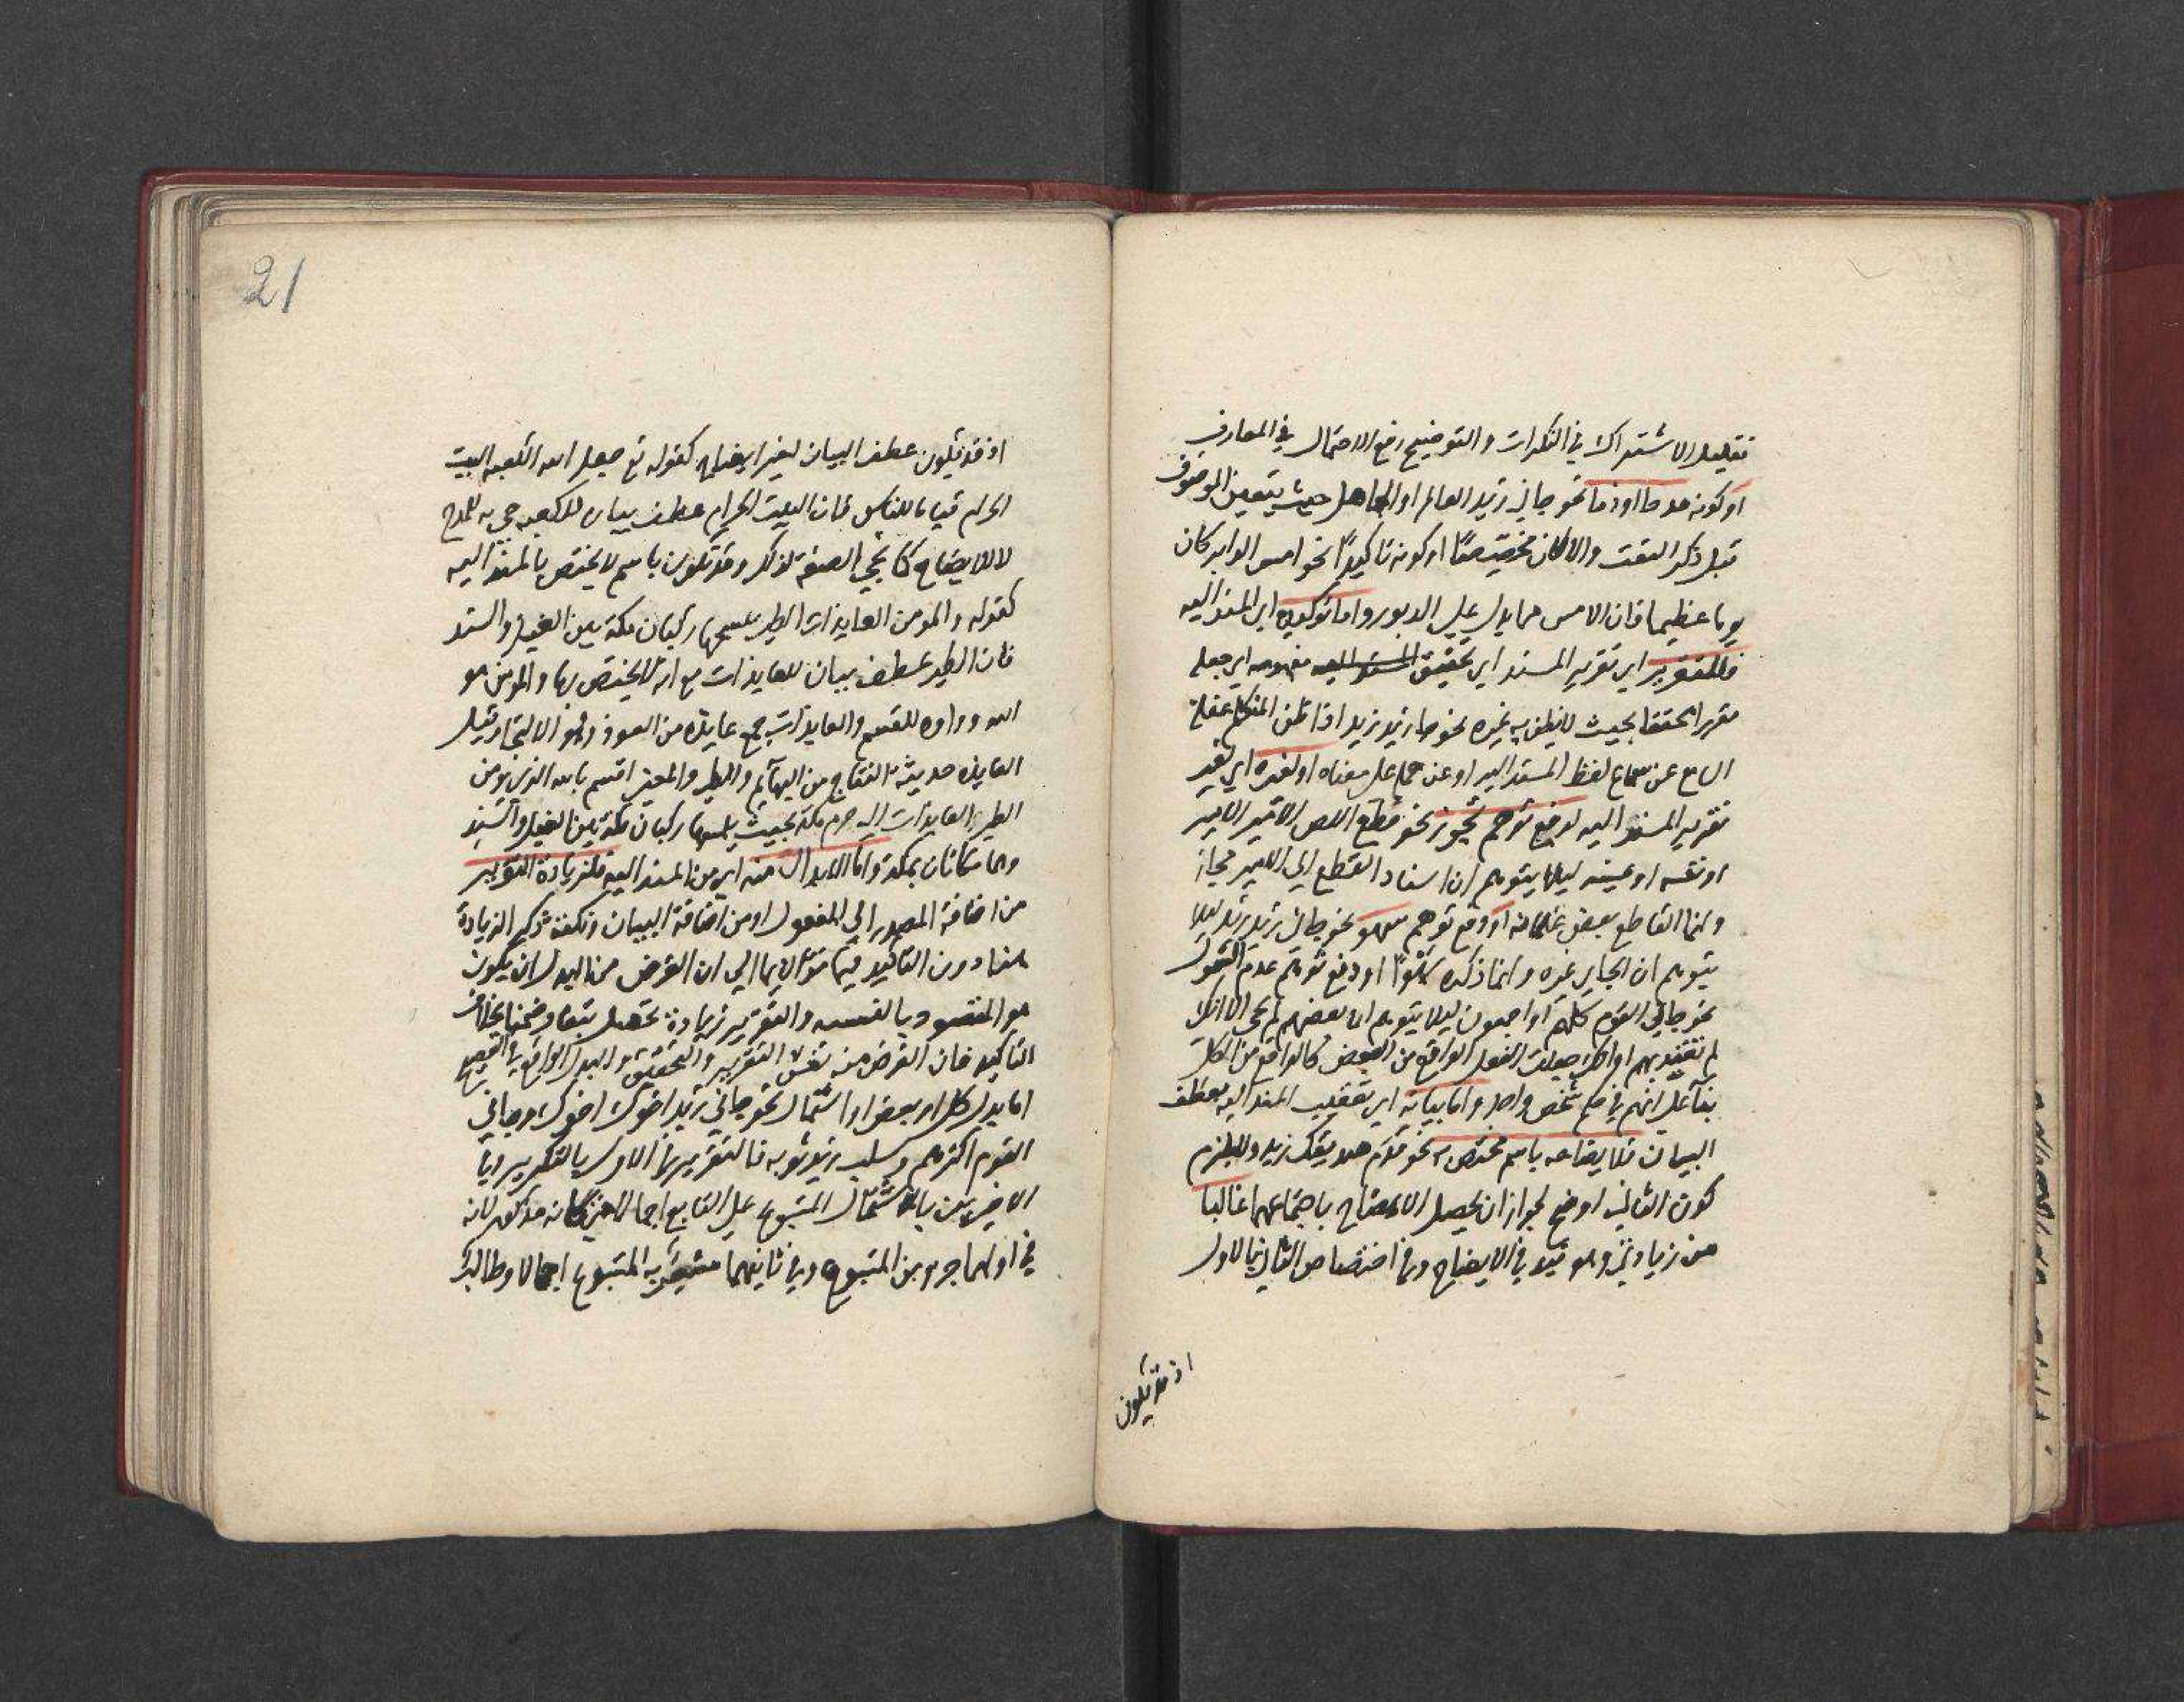 تقليل الاشتراك في النكرات والتوضيح رفع الاحتمال في المعارف
او كونه مدحا او ذما نحو جاني زيد العالم او الجاهل حيث يتعين الموصوف
قبل ذكر النعت والا كان مخصصا او كونه تاكيدا نحو امس الدابر كان
يوما عظيما فان الامس مما يدل على الدبور واما توكيده اي المسند اليه
فللتقرير اي تقرير المسند اي تحقيق مفهومه اي جعله
مقررا محققا بحيث لا يظن به غيره نحو جا زيد زيد اذا ظن المتكلم غفلة
السامع عن سماع لفظ المسند اليه او عن حمله على معناه او لغيره اي لغير
تقرير المسند اليه لدفع توهم تجوز نحو قطع اللص الامير الامير
او نفسه او عينه ليلا يتوهم ان اسناد القطع الى الامير مجاز
وانما القاطع بعض غلمانه او دفع توهم سهو نحو جاني زيد زيد ليلا
يتوهم ان الجاي غيره وانما ذكره سهوا او دفع توهم عدم الشمول
نحو جاني القوم كلهم او اجمعون ليلا يتوهم ان بعضهم لم يجي الا انك
لم تعتد بهم او انك جعلت الفعل الواقع من البعض كالواقع من الكل
بنآ على انهم في حكم شخص واحد واما بيانه اي تعقيب المسند اليه بعطف
البيان فلايضاحه باسم مختص به نحو قدم صديقك زيد ولا يلزم
كون الثاني اوضح لجواز ان يحصل الايضاح باجتماعهما غالبا
من زيادتي وهو قيد في الايضاح وفي اختصاص الثاني بالاول
اذ قد يكون
21
اذ قد يكون عطف البيان لغير ايضاح كقوله تع جعل الله الكعبه البيت
الحرام قياما للناس فان البيت الحرام عطف بيان للكعبه جي به للمدح
لا للايضاح كما تجي الصفة لذلك وقد تكون باسم لا يختص بالمسند اليه
كقوله والمومن العايذات الطير يمسحها ركبان مكة بين الغيل والسند
فان الطير عطف بيان للعايذات مع انه لا يختص بها والمومن هو
الله وواوه للقسم والعايذات جمع عايذه من العوذ وهو الالتجا وقيل
العايذه حديثة النتاج من البهآيم والطير والمعنى اقسم بالله الذي يومن
الطير العايذات الى حرم مكة بحيث يلمسها ركبان مكة بين الغيل والسند
وهما مكانان بمكة واما الابدال منه اي من المسند اليه فلزيادة التقرير
من اضافة المصدر الى المفعول او من اضافة البيان ونكتة ذكر الزيادة
هنا دون التاكيد فيما مر الايما الى ان الغرض من البدل ان يكون
هو المقصود بالنسبه والتقرير زيادة تحصل تبعا وضمنا بخلاف
التاكيد فان الغرض منه نفس التقرير والتحقيق والبدل الواقع في الفصيح
اما بدل كل او بعض او اشتمال نحو جاني زيد اخوك وجاني
القوم اكثرهم وسلب زيد ثوبه فالتقرير في الاول بالتكرير وفي
الاخيرين باشتمال المتبوع على التابع اجمالا فكانه مذكور لانه
في اولهما جزء من المتبوع وفي ثانيهما مشعر به المتبوع اجمالا وطالب